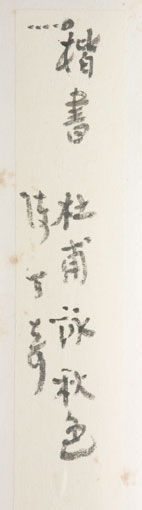 楷書
杜甫詠秋色